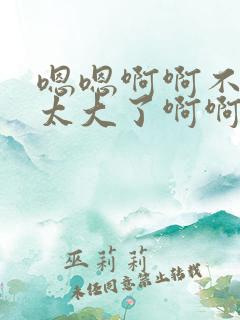 嗯嗯啊啊不
太大了啊啊
巫莉莉
未经同意禁止转载